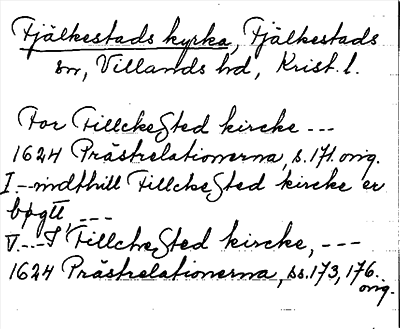 Fjälkestads kyrka, Fjälkestads
sn, Villands hd, Krist. l.
For FillckeSted kircke ---
1624 Prästrelationerna, s. 171. orig.
I --indthill FillckeSted kircke er
bøgtt, ---
V.--I FillckeSted kircke, ---
1624 Prästrelationerna, ss. 173, 176.
orig.